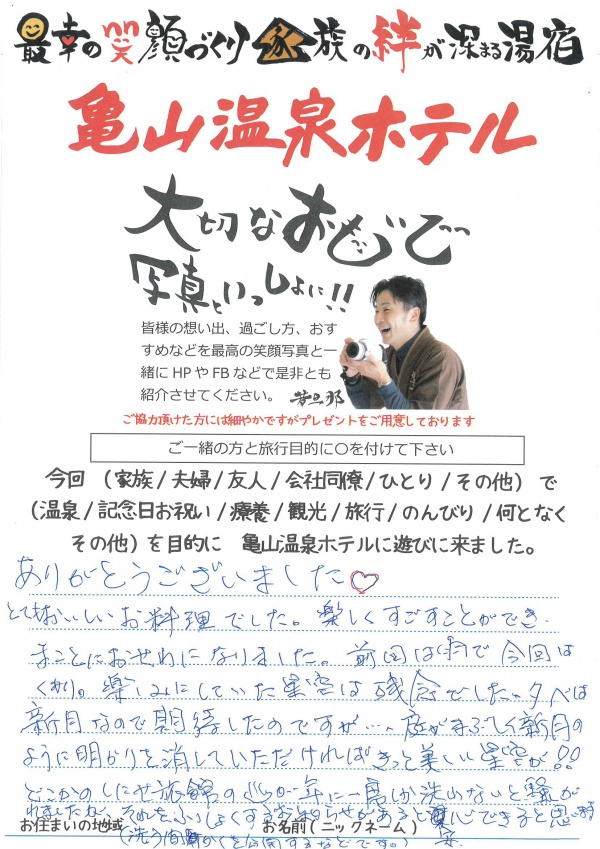 最幸の笑顔づくり 家族の絆が深まる湯宿
亀山温泉ホテル
大切なおもいで
写真といっしょに!!
皆様の想い出、過ごし方、おす
すめなどを最高の笑顔写真と一
緒に HP や FB などで是非とも
紹介させてください。 若旦那
ご協力頂けた方には細やかですがプレゼントをご用意しております
ご一緒の方と旅行目的に〇を付けて下さい
今回 (家族/夫婦/友人/会社同僚/ひとり/その他) で
(温泉/記念日お祝い/療養/観光/旅行/のんびり/何となく
その他) を目的に 亀山温泉ホテルに遊びに来ました。
ありがとうございました♡
とてもおいしいお料理でした。楽しくすごすことができ
まことにおせわになりました。前回は雨で今回は
くもり。楽しみにしていた星空は残念でした。夕べは
新月なので期待したのですが…、庭がまぶしく新月の
ように明かりを消していただければきっと美しい星空が!!
どこかのしにせ旅館の 年に一度しか洗わないと騒が
れましたが、それをふしょくするお知らせがあると 心できると思います
お住まいの地域 お名前(ニックネーム)
(洗う 公開するなどです。)